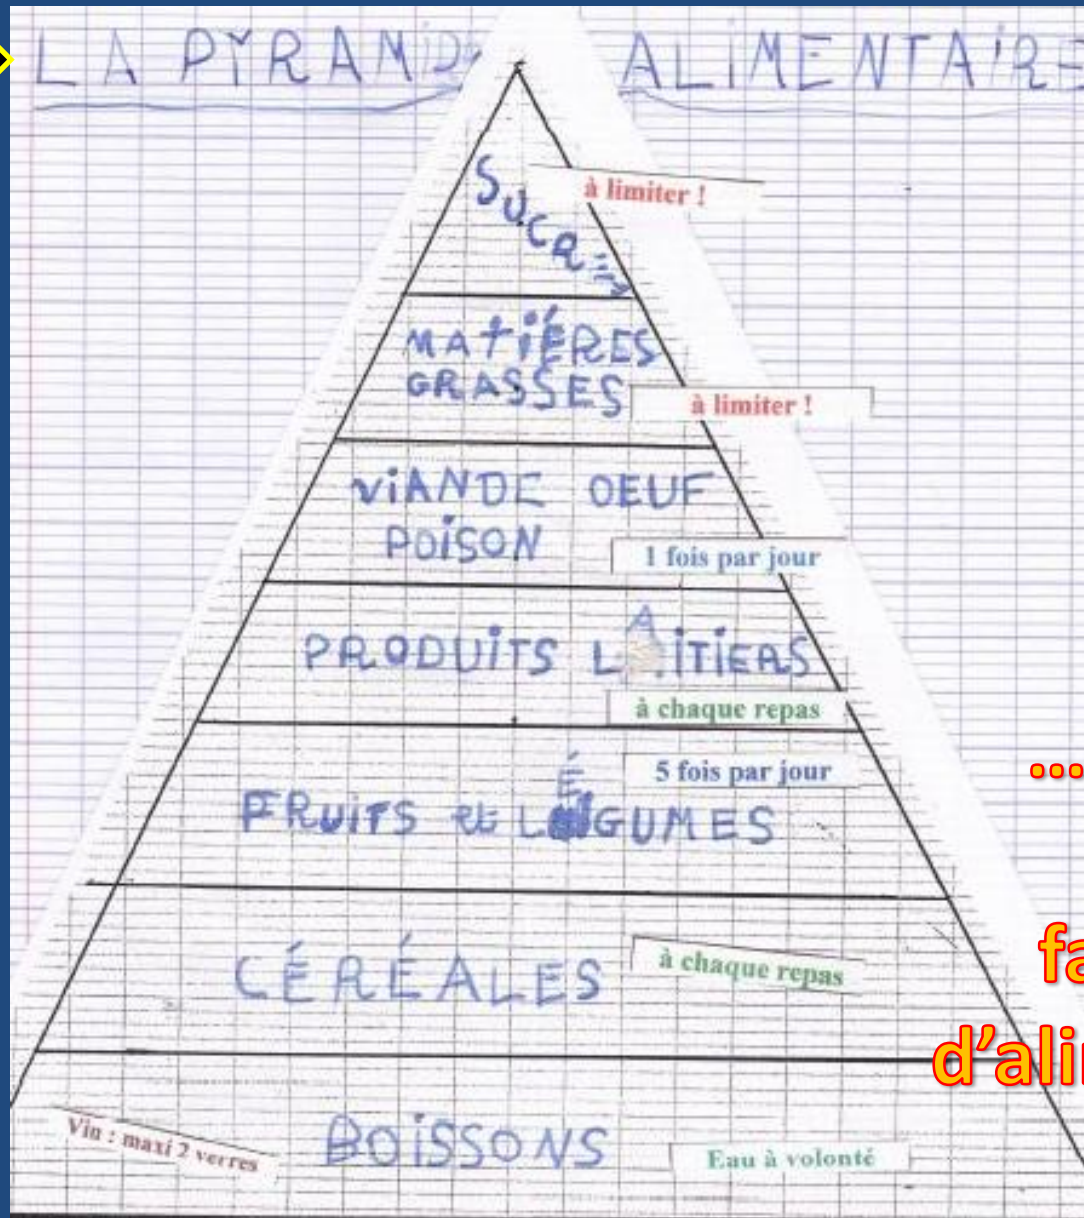 LA PYRAMIDE ALIMENTAIRE
SUCRE
à limiter !
MATIÉRES
GRASSES
à limiter !
VIANDE OEUF
POISON
1 fois par jour
PRODUITS LAITIERS
à chaque repas
5 fois par jour
FRUITS et LÉGUMES
CÉRÉALES
à chaque repas
BOISSONS
Vin : maxi 2 verres
Eau à volonté